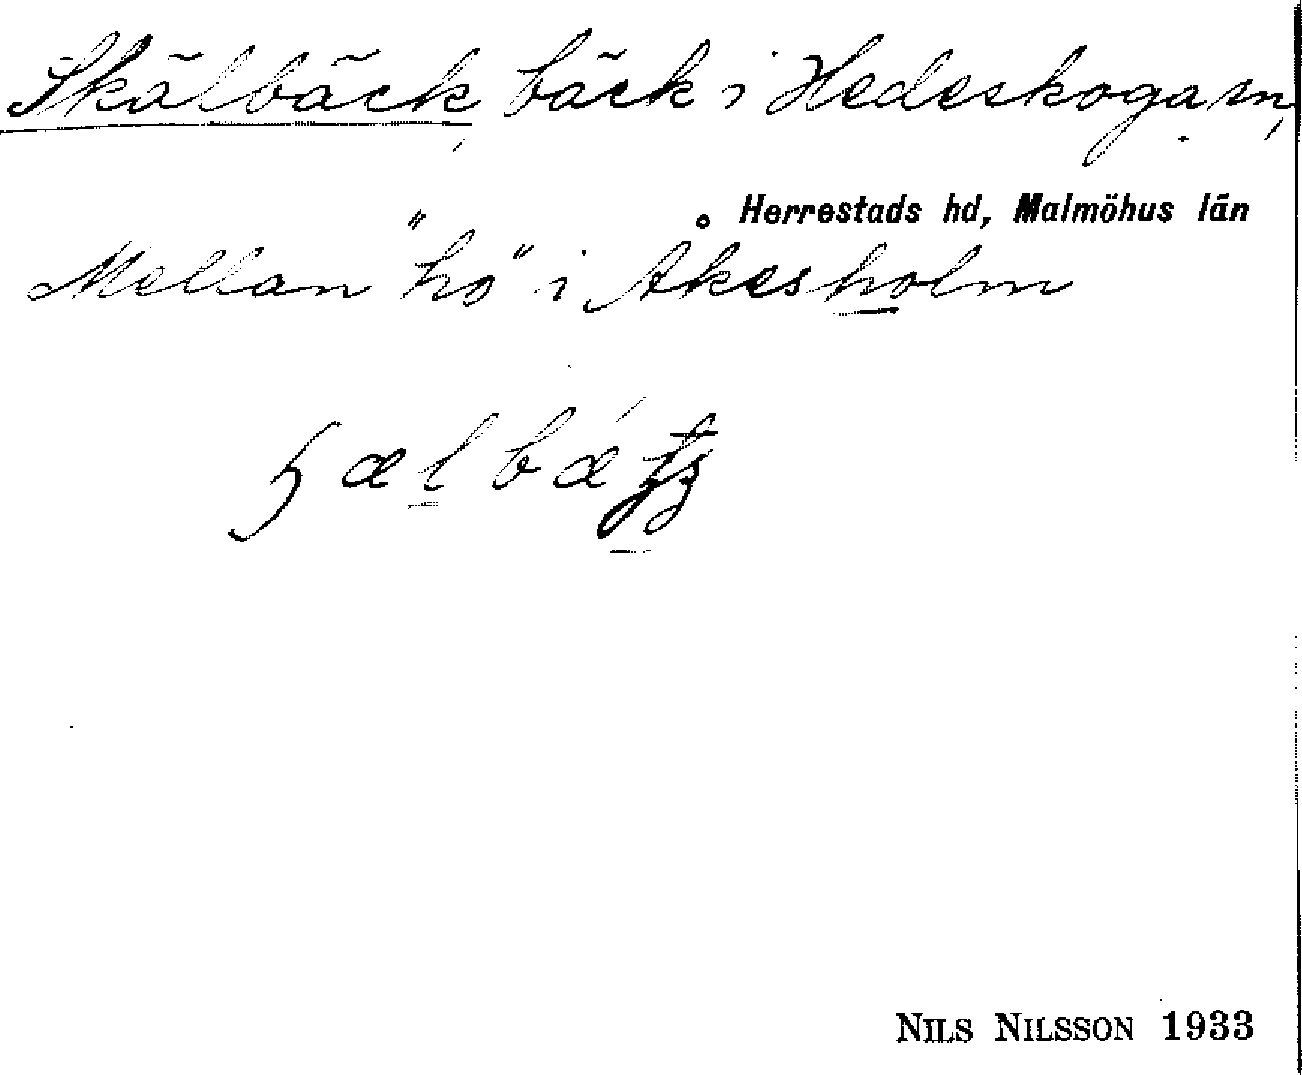 Skälbäck, bäck i Hedeskoga sn,
Herrestads hd, Malmöhus län
Mellan "hö" i Åkesholm
NILS NILSSON 1933